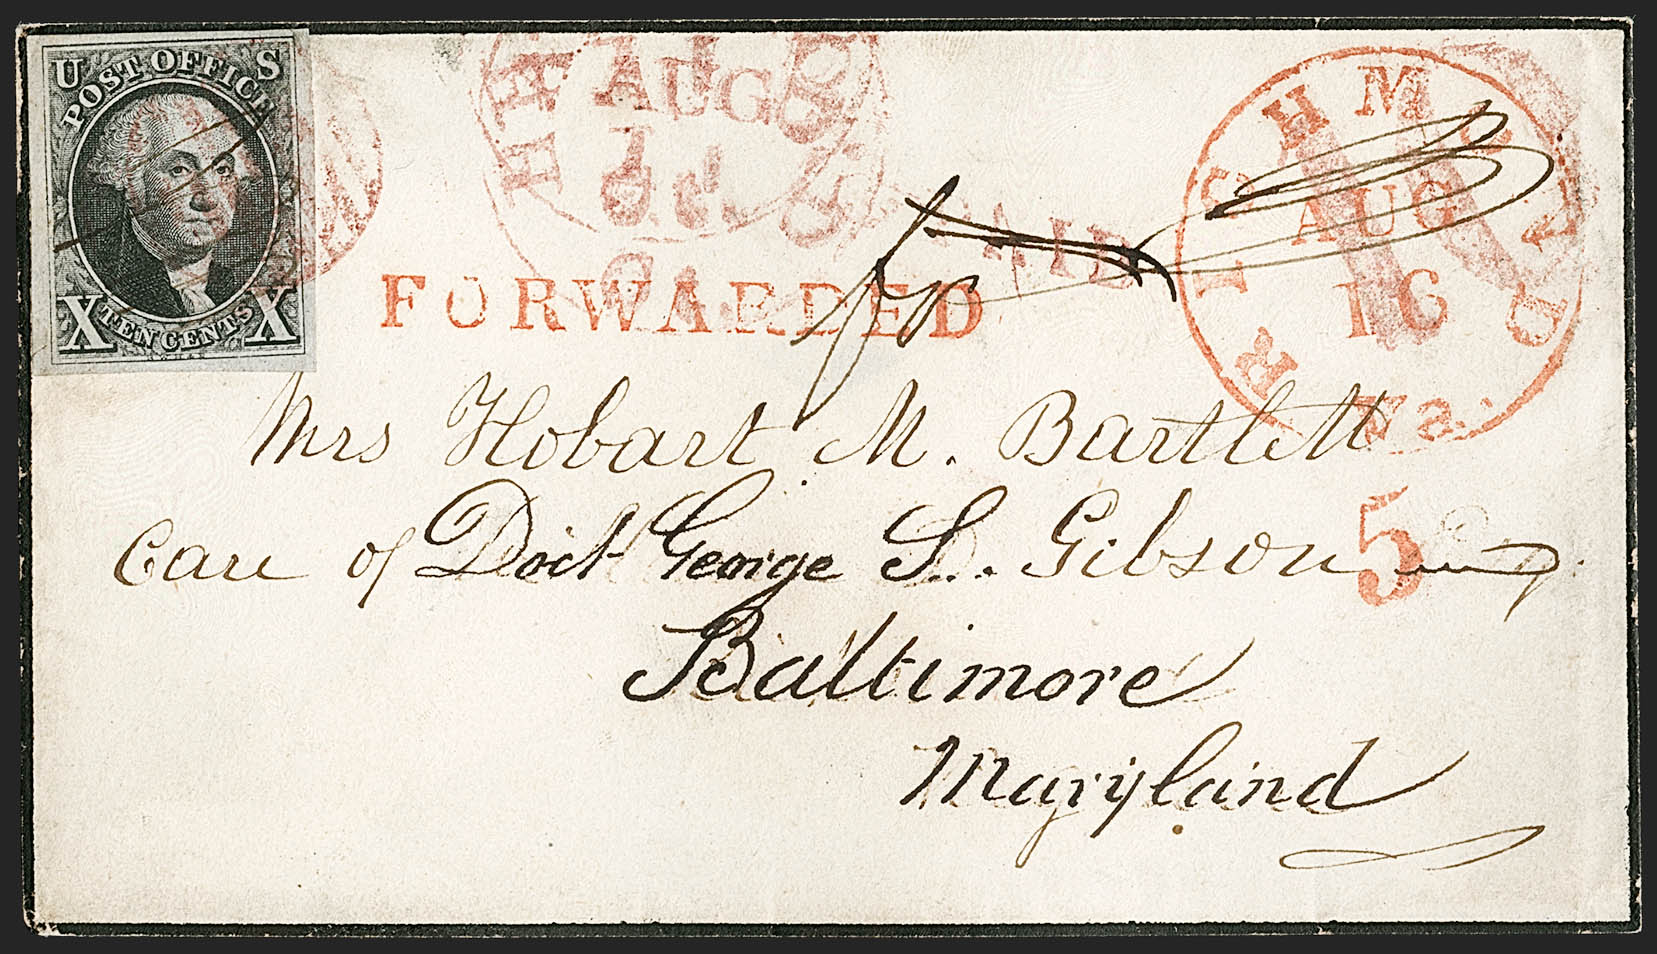 U S
POST OFFICE
X TEN CENTS X
AUG
1
PAID
FORWARDED
RICHMOND
AUG
16
Va.
Mrs Hobart M. Bartlett
Care of Doct George S. Gibson
5
Baltimore
Maryland